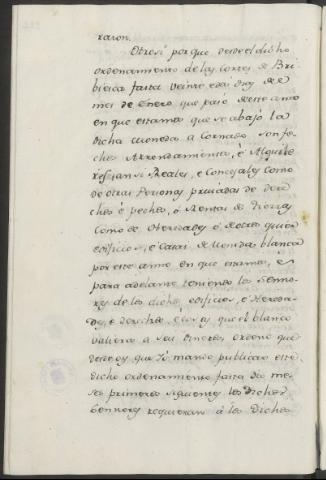 razon.
Otrosi porque desde el dicho
ordenamiento de las cortes de Bri
biesca fasta veinte e dos dias de
mes de enero que paso deste anno
en que estamos que se abajo la
dicha moneda a Cornado, son fe
chos Arrendamientos, é Alquile
res, ansi Reales, é Concejales como
de otras Personas privadas de dere
chos é pechos, ó Rentas de tierras
como de Heredades ó de otros quier
edificios, é casas de moneda blanca
por este anno en que estamos, é
para adelante teniendo los Senno
res de los dichos edificios, é Hereda
des, é derechos, é que el blanco
valiera a seis dineros ordeno que
desde oy, que Yo mando publicar este
dicho ordenamiento fasta dos me
ses primeros siguientes los dichos
Sennores requieran á los dichos